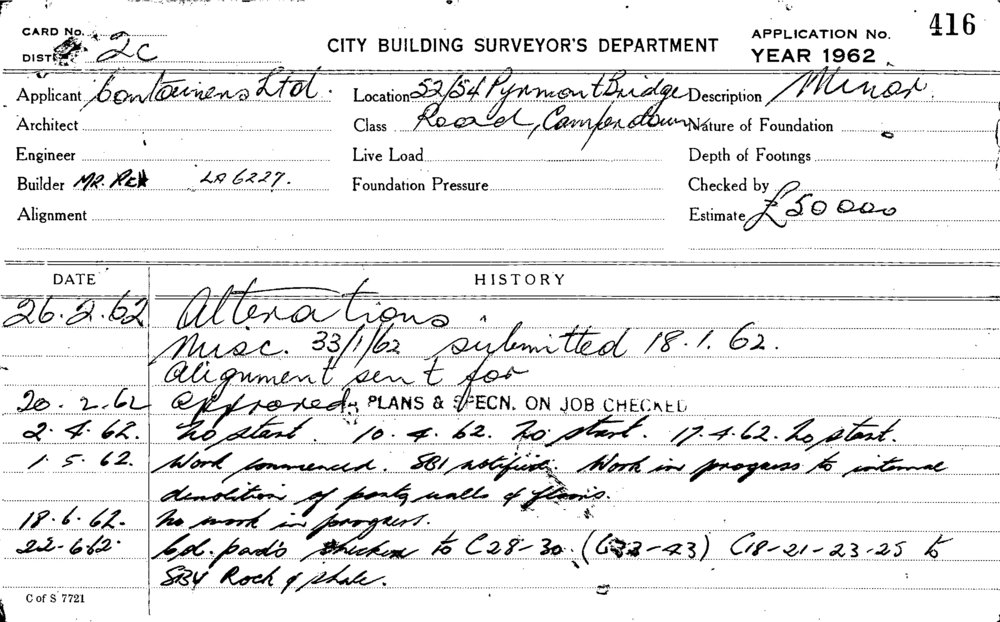 416
CARD No. CITY BUILDING SURVEYOR'S DEPARTMENT APPLICATION No.
DIST. 2C YEAR 1962
Applicant Containers Ltd. Location 52/54 Pyrmont Bridge Description Minor.
Architect Class Road, Camperdown Nature of Foundation
Engineer Live Load Depth of Footings
Builder MR. REX LA 6227. Foundation Pressure Checked by
Alignment Estimate £50000
DATE HISTORY
26.2.62 Alterations.
Misc. 33/1/62 submitted 18.1.62.
Alignment sent for
20.2.62 Approved PLANS & SPECN. ON JOB CHECKED
2.4.62. No start. 10.4.62. No start. 17.4.62. No start.
1.5.62. Work commenced. SBI notified. Work in progress to internal
demolition of party walls & floors.
18.6.62. No work in progress.
22.6.62. Col. pads to C28-30. (C32-43) C18-21-23-25 to
Rock & shale.
C of S 7721